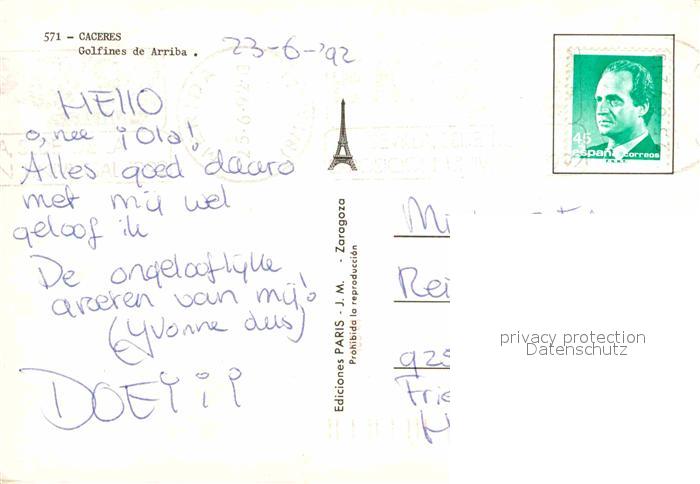 571 - CACERES
Golfines de Arriba .
23-6-'92
HEllO
o, nee ¡Ola!
Alles goed daaro
met mij wel
geloof ik
De ongelooflijke
groeten van mij!
(Yvonne dus)
DOEiii
Ediciones PARIS - J. M. - Zaragoza
Prohibida la reproducción
45
España correos
Mi
Rei
925
Frie
H
privacy protection
Datenschutz